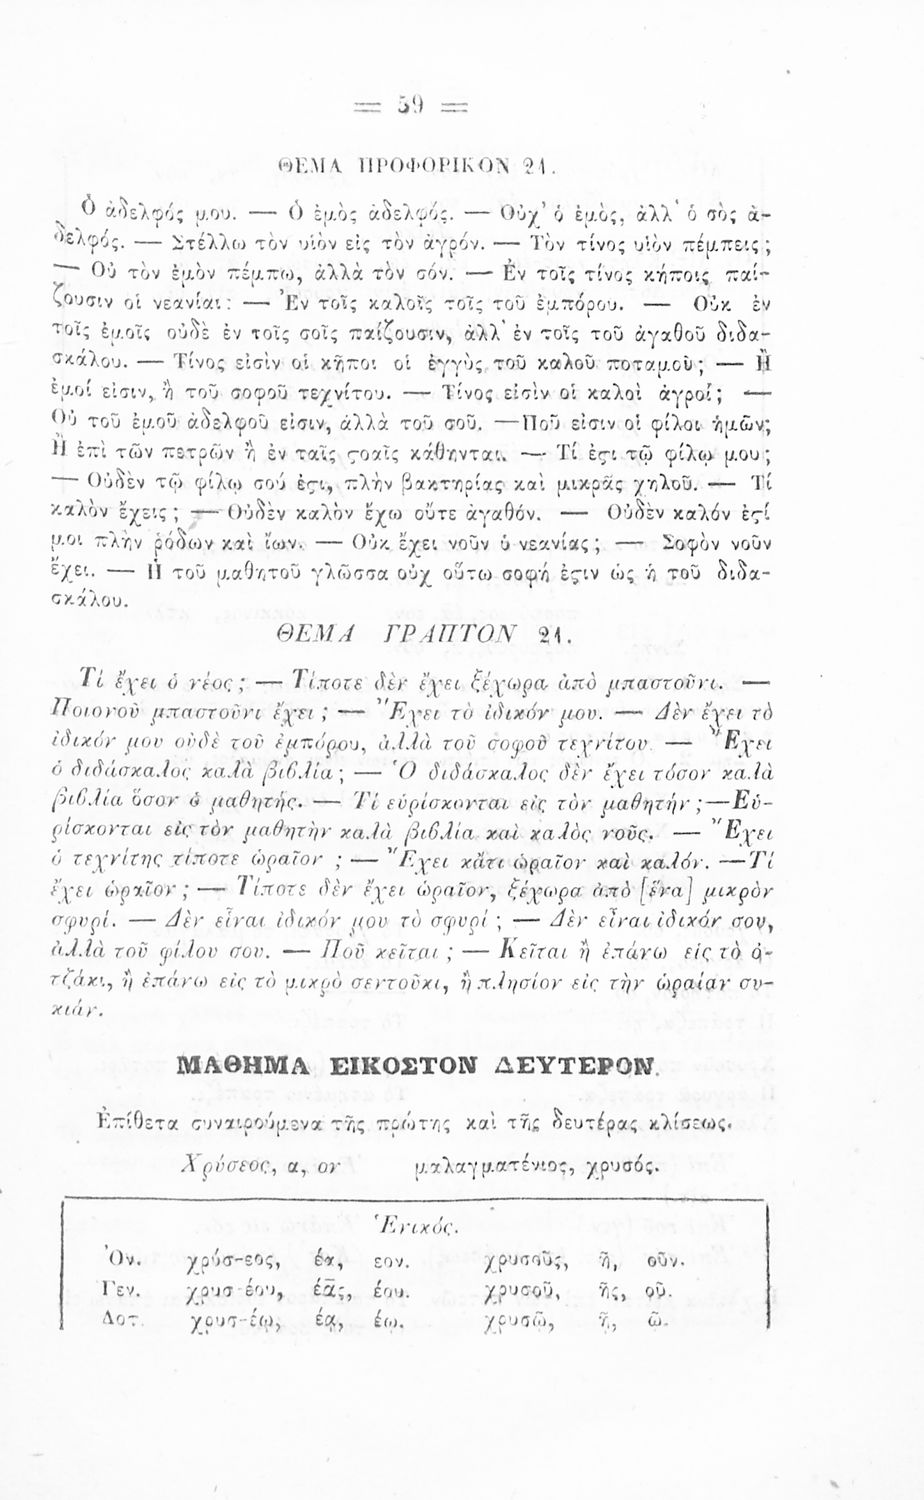 = 59 =
ΘΕΜΑ ΠΡΟΦΟΡΙΚΟΝ 21.
Ὁ ἀδελφός μου. — Ὁ ἐμὸς ἀδελφός. — Οὐχ᾽ ὁ ἐμὸς, ἀλλ᾽ ὁ σὸς ἀ-
δελφός. — Στέλλω τὸν υἱὸν εἰς τὸν ἀγρόν. — Τὸν τίνος υἱὸν πέμπεις;
— Οὐ τὸν ἐμὸν πέμπω, ἀλλὰ τὸν σόν. — Ἐν τοῖς τίνος κήποις παί-
ζουσιν οἱ νεανίαι; — Ἐν τοῖς καλοῖς τοῖς τοῦ ἐμπόρου. — Οὐκ ἐν
τοῖς ἐμοῖς οὐδὲ ἐν τοῖς σοῖς παίζουσιν, ἀλλ᾽ ἐν τοῖς τοῦ ἀγαθοῦ διδα-
σκάλου. — Τίνος εἰσὶν οἱ κῆποι οἱ ἐγγὺς τοῦ καλοῦ ποταμοῦ; — Ἢ
ἐμοί εἰσιν, ἢ τοῦ σοφοῦ τεχνίτου. — Τίνος εἰσὶν οἱ καλοὶ ἀγροί; —
Οὐ τοῦ ἐμοῦ ἀδελφοῦ εἰσιν, ἀλλὰ τοῦ σοῦ. — Ποῦ εἰσιν οἱ φίλοι ἡμῶν;
Ἢ ἐπὶ τῶν πετρῶν ἢ ἐν ταῖς ϛοαῖς κάθηνται. — Τί ἐϛι τῷ φίλῳ μου;
— Οὐδὲν τῷ φίλῳ σού ἐϛι, πλὴν βακτηρίας καὶ μικρᾶς χηλοῦ. — Τί
καλὸν ἔχεις; — Οὐδὲν καλὸν ἔχω οὔτε ἀγαθόν. — Οὐδὲν καλόν ἐϛί
μοι πλὴν ῥόδων καὶ ἴων. — Οὐκ ἔχει νοῦν ὁ νεανίας; — Σοφὸν νοῦν
ἔχει. — Ἡ τοῦ μαθητοῦ γλῶσσα οὐχ οὕτω σοφή ἐϛιν ὡς ἡ τοῦ διδα-
σκάλου.
ΘΕΜΑ ΓΡΑΠΤΟΝ 21.
Τί ἔχει ὁ νέος; — Τίποτε δὲν ἔχει ξέχωρα ἀπὸ μπαστοῦνι. —
Ποιονοῦ μπαστοῦνι ἔχει; — Ἔχει τὸ ἰδικόν μου. — Δὲν ἔχει τὸ
ἰδικόν μου οὐδὲ τοῦ ἐμπόρου, ἀλλὰ τοῦ σοφοῦ τεχνίτου. — Ἔχει
ὁ διδάσκαλος καλὰ βιβλία; — Ὁ διδάσκαλος δὲν ἔχει τόσον καλὰ
βιβλία ὅσον ὁ μαθητής. — Τί εὑρίσκονται εἰς τὸν μαθητήν; — Εὑ-
ρίσκονται εἰς τὸν μαθητὴν καλὰ βιβλία καὶ καλὸς νοῦς. — Ἔχει
ὁ τεχνίτης τίποτε ὡραῖον; — Ἔχει κἄτι ὡραῖον καὶ καλόν. — Τί
ἔχει ὡραῖον; — Τίποτε δὲν ἔχει ὡραῖον, ξέχωρα ἀπὸ [ἕνα] μικρὸν
σφυρί. — Δὲν εἶναι ἰδικόν μου τὸ σφυρί; — Δὲν εἶναι ἰδικόν σου,
ἀλλὰ τοῦ φίλου σου. — Ποῦ κεῖται; — Κεῖται ἢ ἐπάνω εἰς τὸ ὀ-
τζάκι, ἢ ἐπάνω εἰς τὸ μικρὸ σεντοῦκι, ἢ πλησίον εἰς τὴν ὡραίαν συ-
κιάν.
ΜΑΘΗΜΑ ΕΙΚΟΣΤΟΝ ΔΕΥΤΕΡΟΝ.
Ἐπίθετα συναιρούμενα τῆς πρώτης καὶ τῆς δευτέρας κλίσεως.
Χρύσεος, α, ον μαλαγματένιος, χρυσός.
Ἑνικός.
Ὀν. χρύσ-εος, έα, εον. χρυσοῦς, ῆ, οῦν.
Γεν. χρυσ-έου, έας, έου. χρυσοῦ, ῆς, οῦ.
Δοτ. χρυσ-έῳ, έᾳ, έῳ. χρυσῷ, ῇ, ῷ.